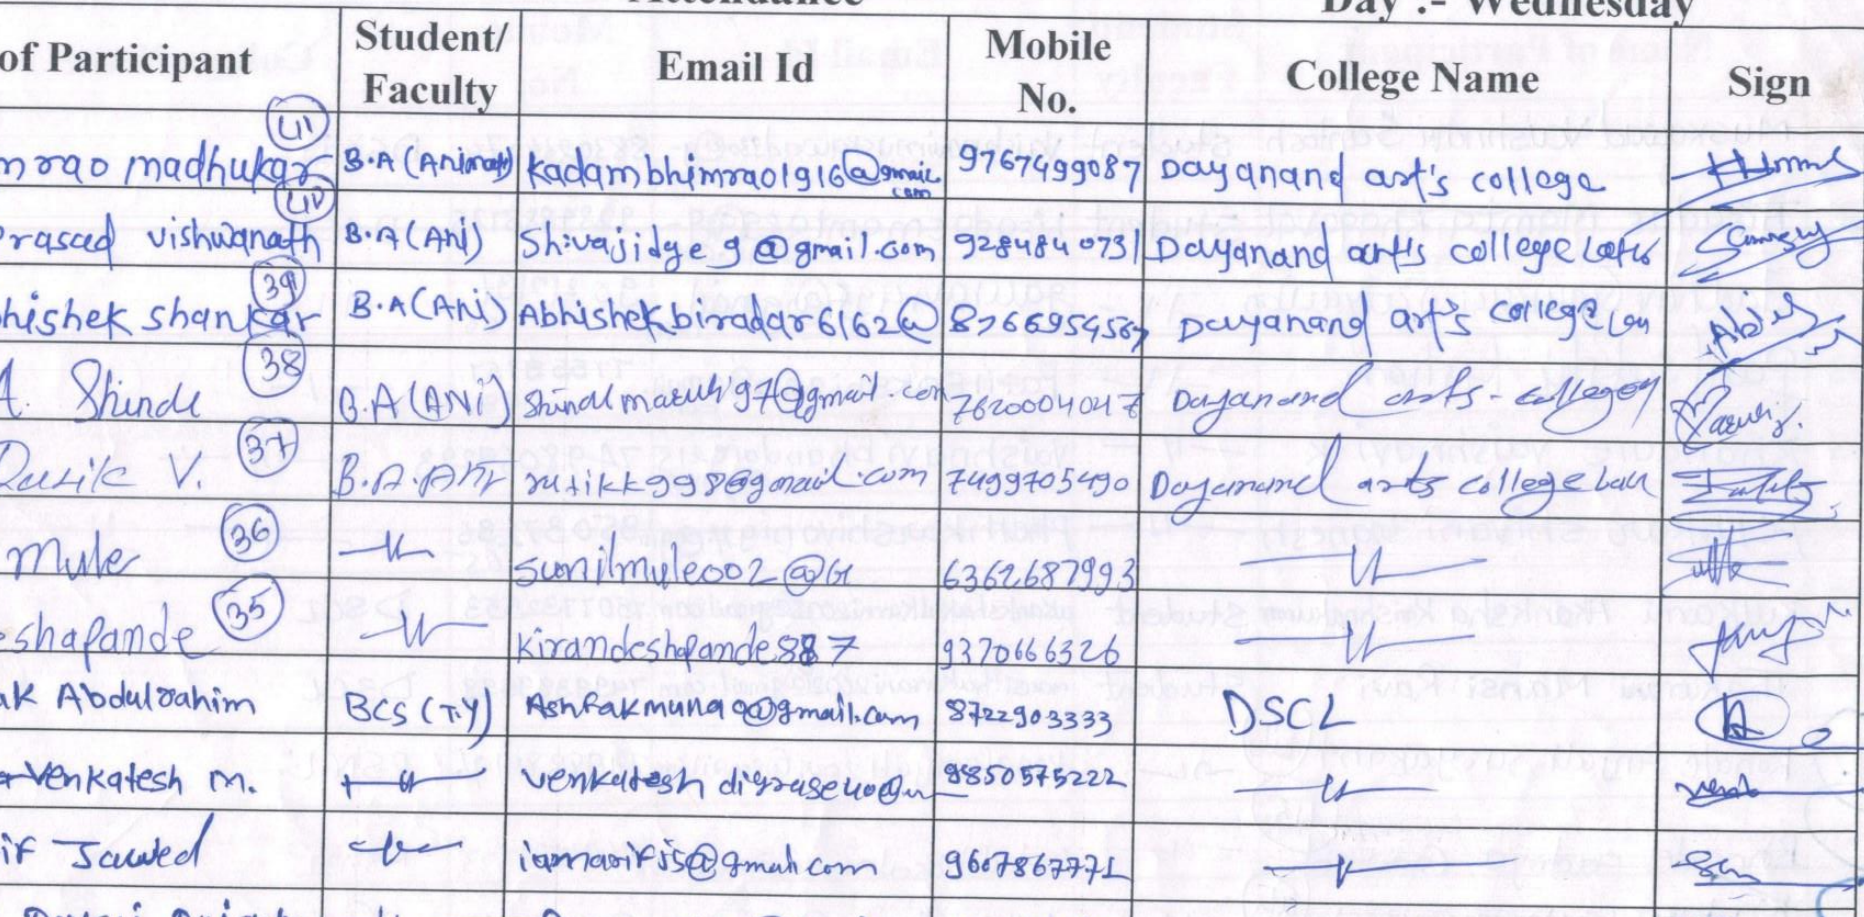 Attendance Day :- Wednesday
of Participant Student/ Faculty Email Id Mobile No. College Name Sign
41
mrao madhukar B.A (Animat) kadambhimrao1916@gmail.com 9767499087 Dayanand art's college
40
rasad vishwanath B.A (Ani) Shivajidge9@gmail.com 9284840731 Dayanand art's college Latur
39
hishek shankar B.A (Ani) Abhishekbiradar6162@ 8766954567 Dayanand art's college
38
A. Shinde B.A (ANi) 7620004047 Dayanand arts college
37
V. B.A. rutikk998@gmail.com 7499705490 Dayanand arts college
36
Mule -〃- sunilmule002@G 6362687993 -〃-
35
shapande -〃- Kirandeshpande887 9370666326 -〃-
ak Abdulrahim BCS (T.Y) Ashfakmuna9@gmail.com 8722903333 DSCL
Venkatesh m. -〃- venkatesh 9850575222 -〃-
if Jawed -〃- iamarifj5@gmail.com 9607867771 -〃-